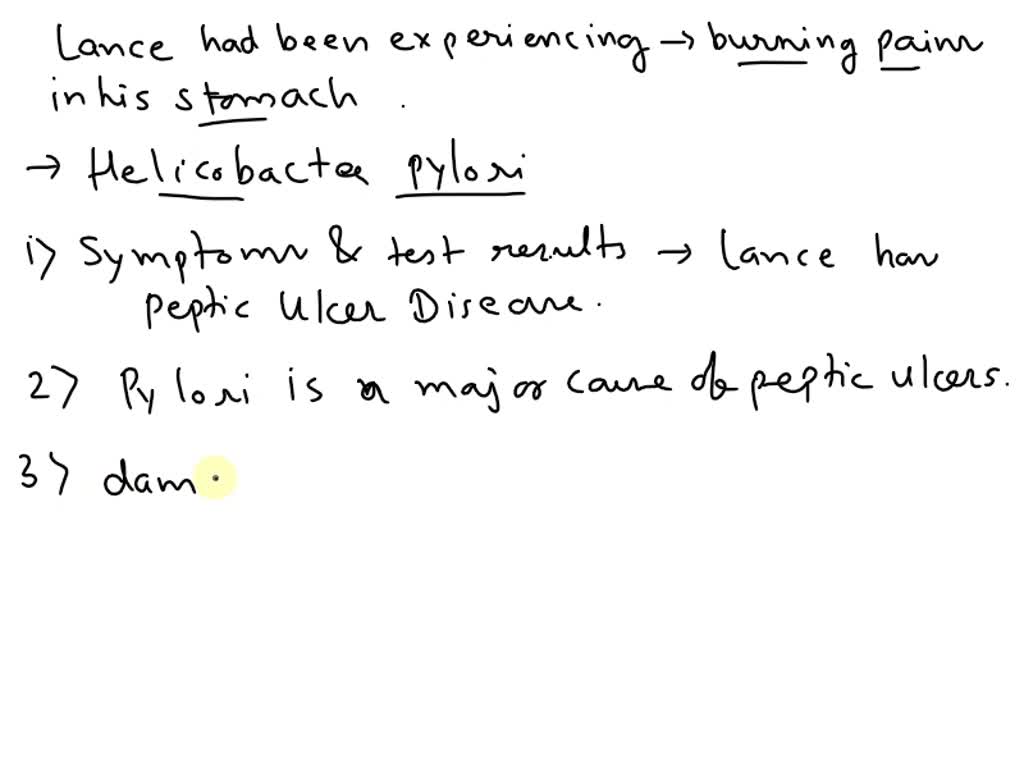 Lance had been experiencing → burning pains
in his stomach .
→ Helicobacter pylori
1) Symptoms & test results → Lance has
peptic Ulcer Disease.
2) Pylori is a major cause of peptic ulcers.
3) dam